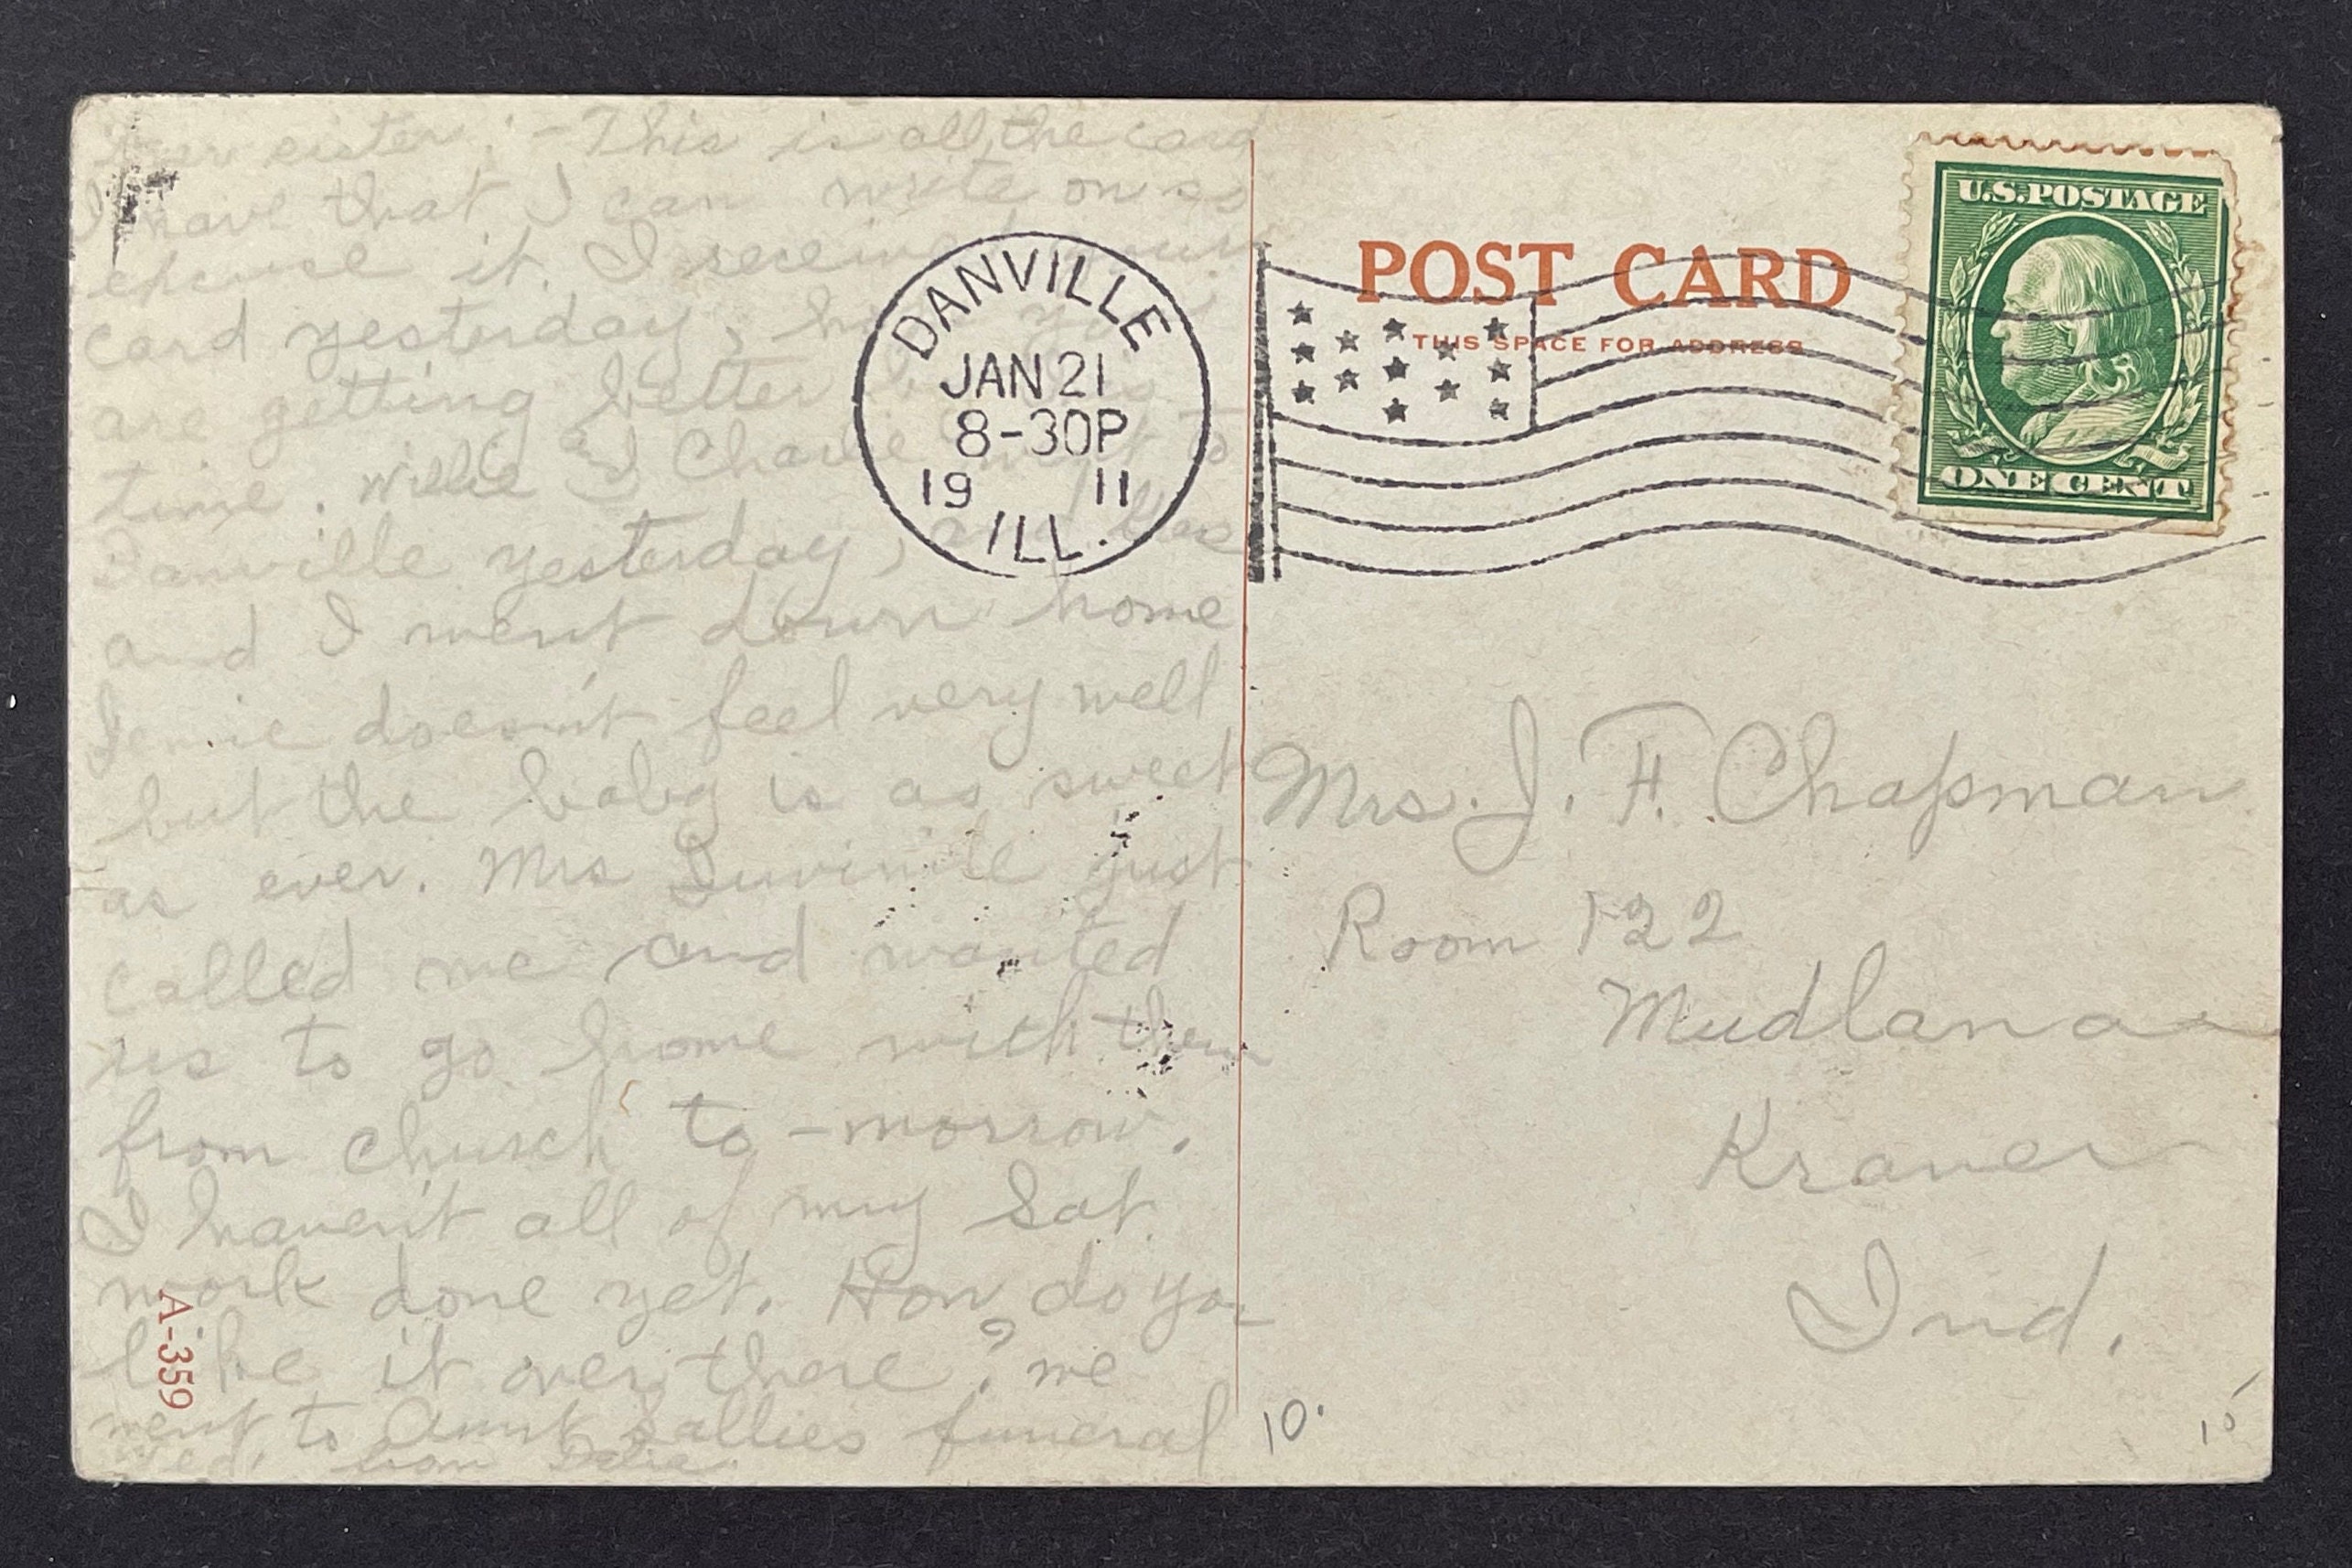 Dear sister:- This is all the card
I have that I can write on so
excuse it. I received your
card yesterday,
are getting better
time. Willie and Charlie went to
Danville yesterday, and
and I went down home
Jennie doesn't feel very well
but the baby is as sweet
as ever. Mrs just
called me and wanted
us to go home with them
from church to-morrow.
I haven't all of my Sat.
work done yet. How do you
like it over there? we
went to Aunt Sallies funeral
Wed. from
A-359
DANVILLE
JAN 21
8-30P
19 11
ILL.
POST CARD
THIS SPACE FOR ADDRESS
U.S. POSTAGE
ONE CENT
Mrs. J. F. Chapman
Room 122
Mudlana
Kramer
Ind.
10.
15